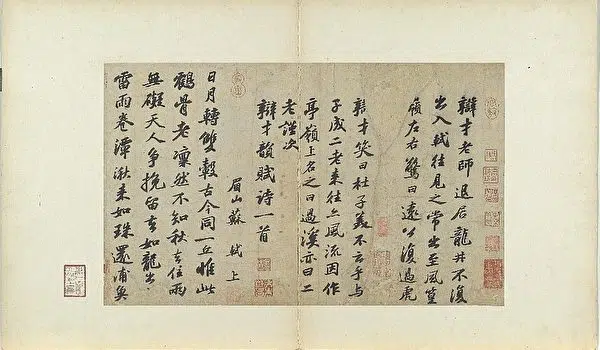 辯才老師退居龍井不復
出入軾往見之常出至風篁
嶺左右驚曰遠公復過虎
辯才笑曰杜子美不云乎與
子成二老來往亦風流因作
亭嶺上名之曰過溪亦曰二
老謹次
辯才韻賦詩一首
眉山蘇軾上
日月轉雙轂古今同一丘惟此
鶴骨老凜然不知秋去住兩
無礙天人爭挽留去如龍出
雷雨卷潭湫來如珠還浦魚